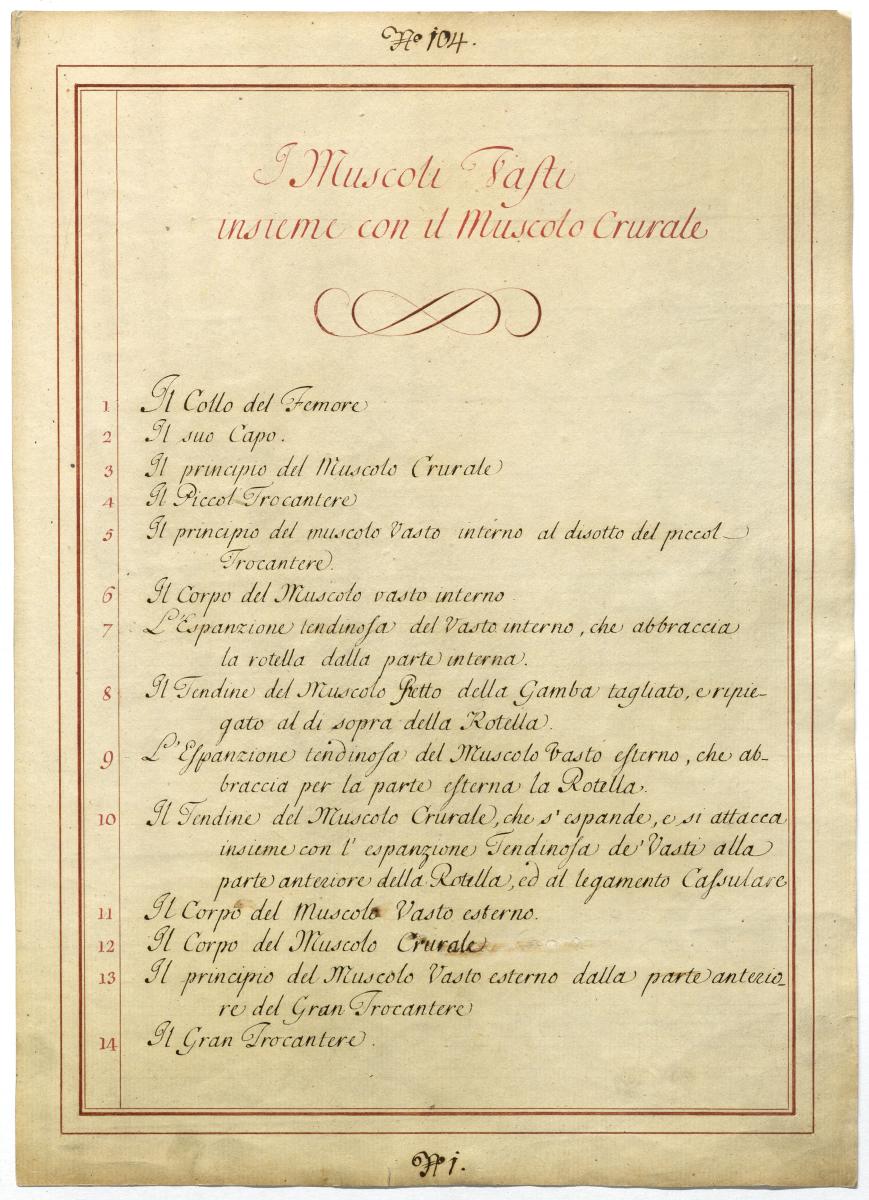 No 104.
I Muscoli Vasti
insieme con il Muscolo Crurale
1 Il Collo del Femore
2 Il suo Capo.
3 Il principio del Muscolo Crurale
4 Il Piccol Trocantere
5 Il principio del muscolo Vasto interno al disotto del piccol
Trocantere.
6 Il Corpo del Muscolo vasto interno
7 L'Espanzione tendinosa del Vasto interno, che abbraccia
la rotella dalla parte interna.
8 Il Tendine del Muscolo Retto della Gamba tagliato, e ripie-
gato al di sopra della Rotella.
9 L'Espanzione tendinosa del Muscolo Vasto esterno, che ab-
braccia per la parte esterna la Rotella.
10 Il Tendine del Muscolo Crurale, che s'espande, e si attacca
insieme con l'espanzione Tendinosa de' Vasti alla
parte anteriore della Rotella, ed al legamento Cassulare
11 Il Corpo del Muscolo Vasto esterno.
12 Il Corpo del Muscolo Crurale
13 Il principio del Muscolo Vasto esterno dalla parte anterio-
re del Gran Trocantere
14 Il Gran Trocantere.
No 1.